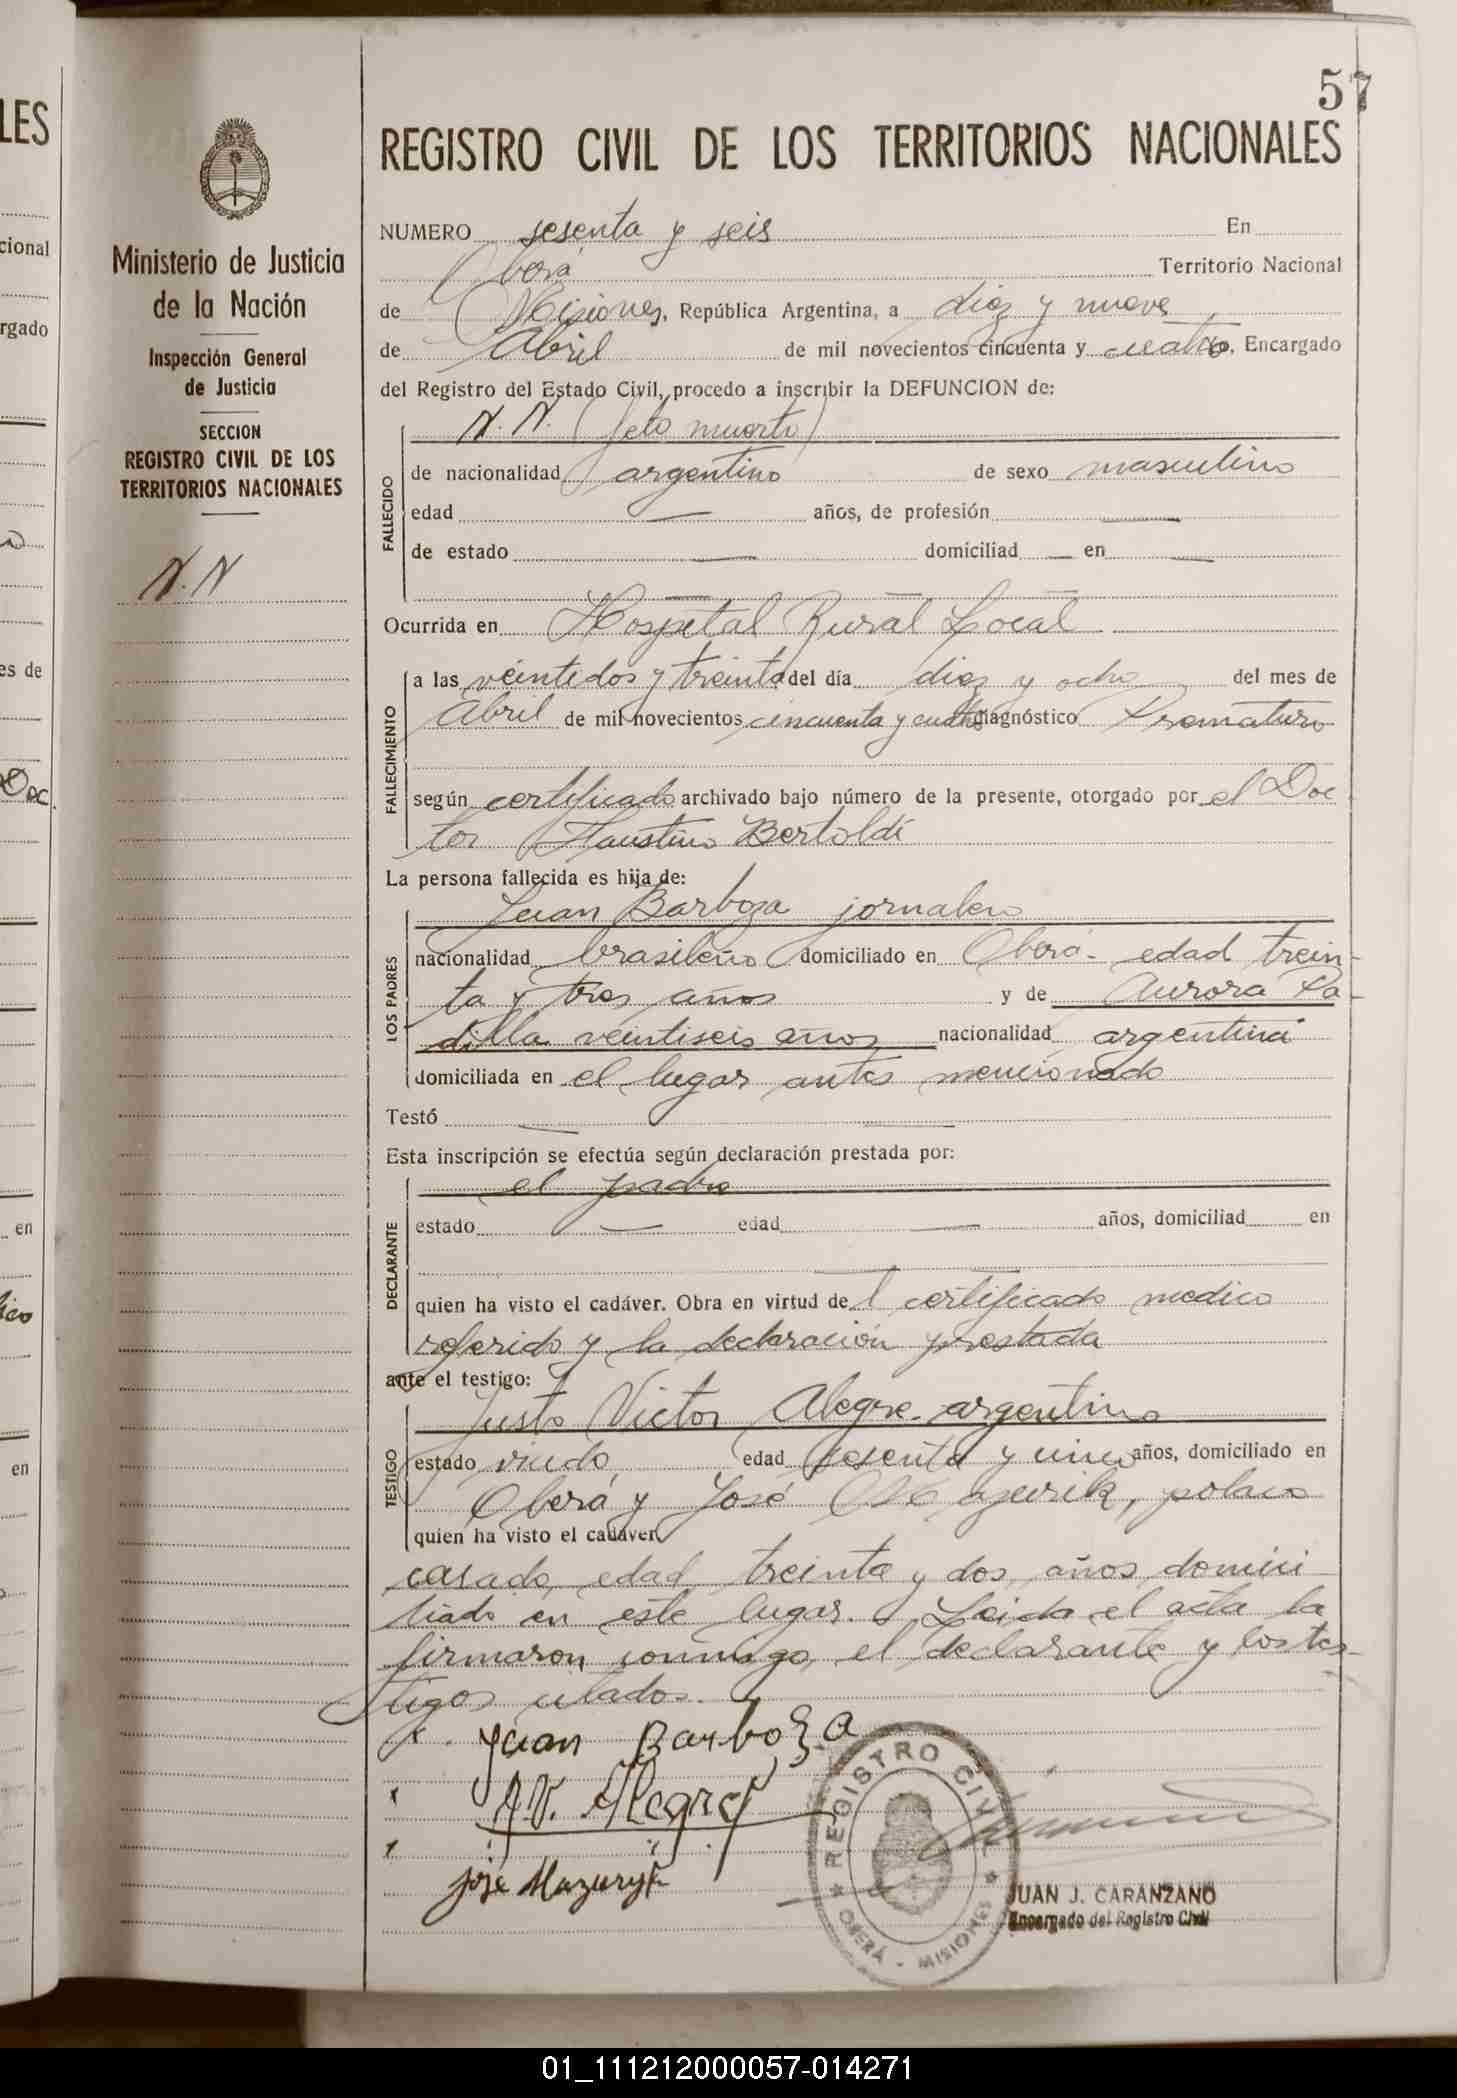 57
LES
cional
rgado
es de
Doc.
en
en
Ministerio de Justicia
de la Nación
Inspección General
de Justicia
SECCION
REGISTRO CIVIL DE LOS
TERRITORIOS NACIONALES
N.N
REGISTRO CIVIL DE LOS TERRITORIOS NACIONALES
NUMERO sesenta y seis En
Oberá Territorio Nacional
de Misiones, República Argentina, a diez y nueve
de Abril de mil novecientos cincuenta y cuatro, Encargado
del Registro del Estado Civil, procedo a inscribir la DEFUNCION de:
N.N. (feto muerto)
FALLECIDO
de nacionalidad argentino de sexo masculino
edad — años, de profesión —
de estado — domiciliad — en —
Ocurrida en Hospital Rural Local
FALLECIMIENTO
a las veintidos y treinta del día diez y ocho del mes de
Abril de mil novecientos cincuenta y cuatro diagnóstico Prematuro
según certificado archivado bajo número de la presente, otorgado por el Doc
tor Faustino Bertoldi
La persona fallecida es hija de:
LOS PADRES
Juan Barboza jornalero
nacionalidad brasileño domiciliado en Oberá - edad trein-
ta y tres años y de Aurora Pa-
dilla veintiseis años nacionalidad argentina
domiciliada en el lugar antes mencionado
Testó —
Esta inscripción se efectúa según declaración prestada por:
DECLARANTE
el padre
estado — edad — años, domiciliad en
quien ha visto el cadáver. Obra en virtud del certificado medico
referido y la declaración prestada
ante el testigo:
TESTIGO
Justo Victor Alegre - argentino
estado viudo, edad sesenta y uno años, domiciliado en
Oberá y José Mazurik, polaco
quien ha visto el cadáver
casado, edad treinta y dos años domici
liado en este lugar. Leida el acta la
firmaron conmigo, el declarante y los tes-
tigos citados.
x Juan Barboza
x J.V. Alegre
x José Mazuryk
REGISTRO CIVIL
OBERÁ - MISIONES
JUAN J. CARANZANO
Encargado del Registro Civil
01_111212000057-014271